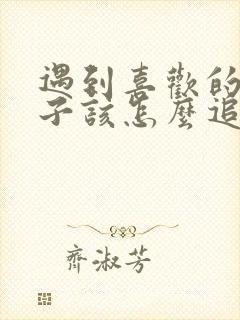 遇到喜歡的
子該怎麼追
齊淑芳